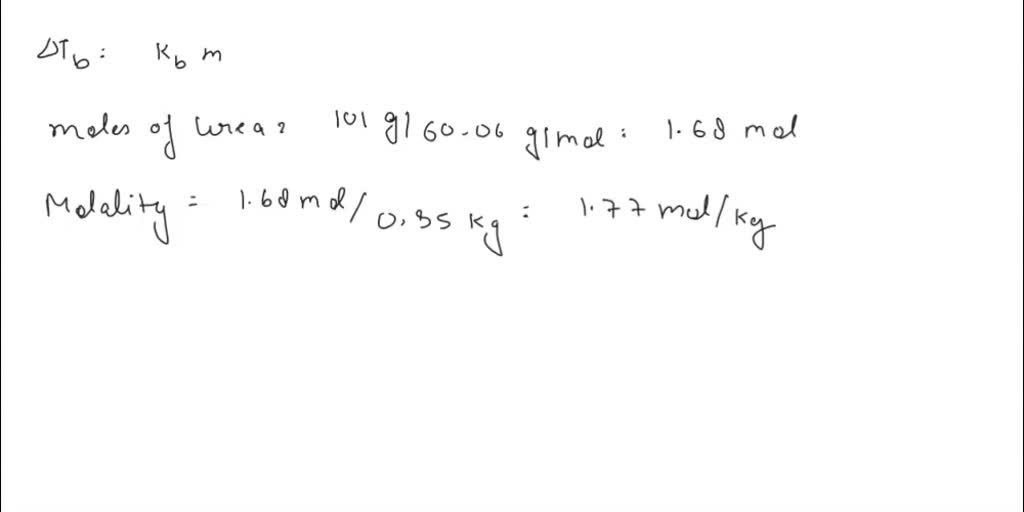 ΔTb: Kb m
moles of Urea: 101 g/60.06 g/mol: 1.68 mol
Molality = 1.68 mol/0.95 kg: 1.77 mol/kg